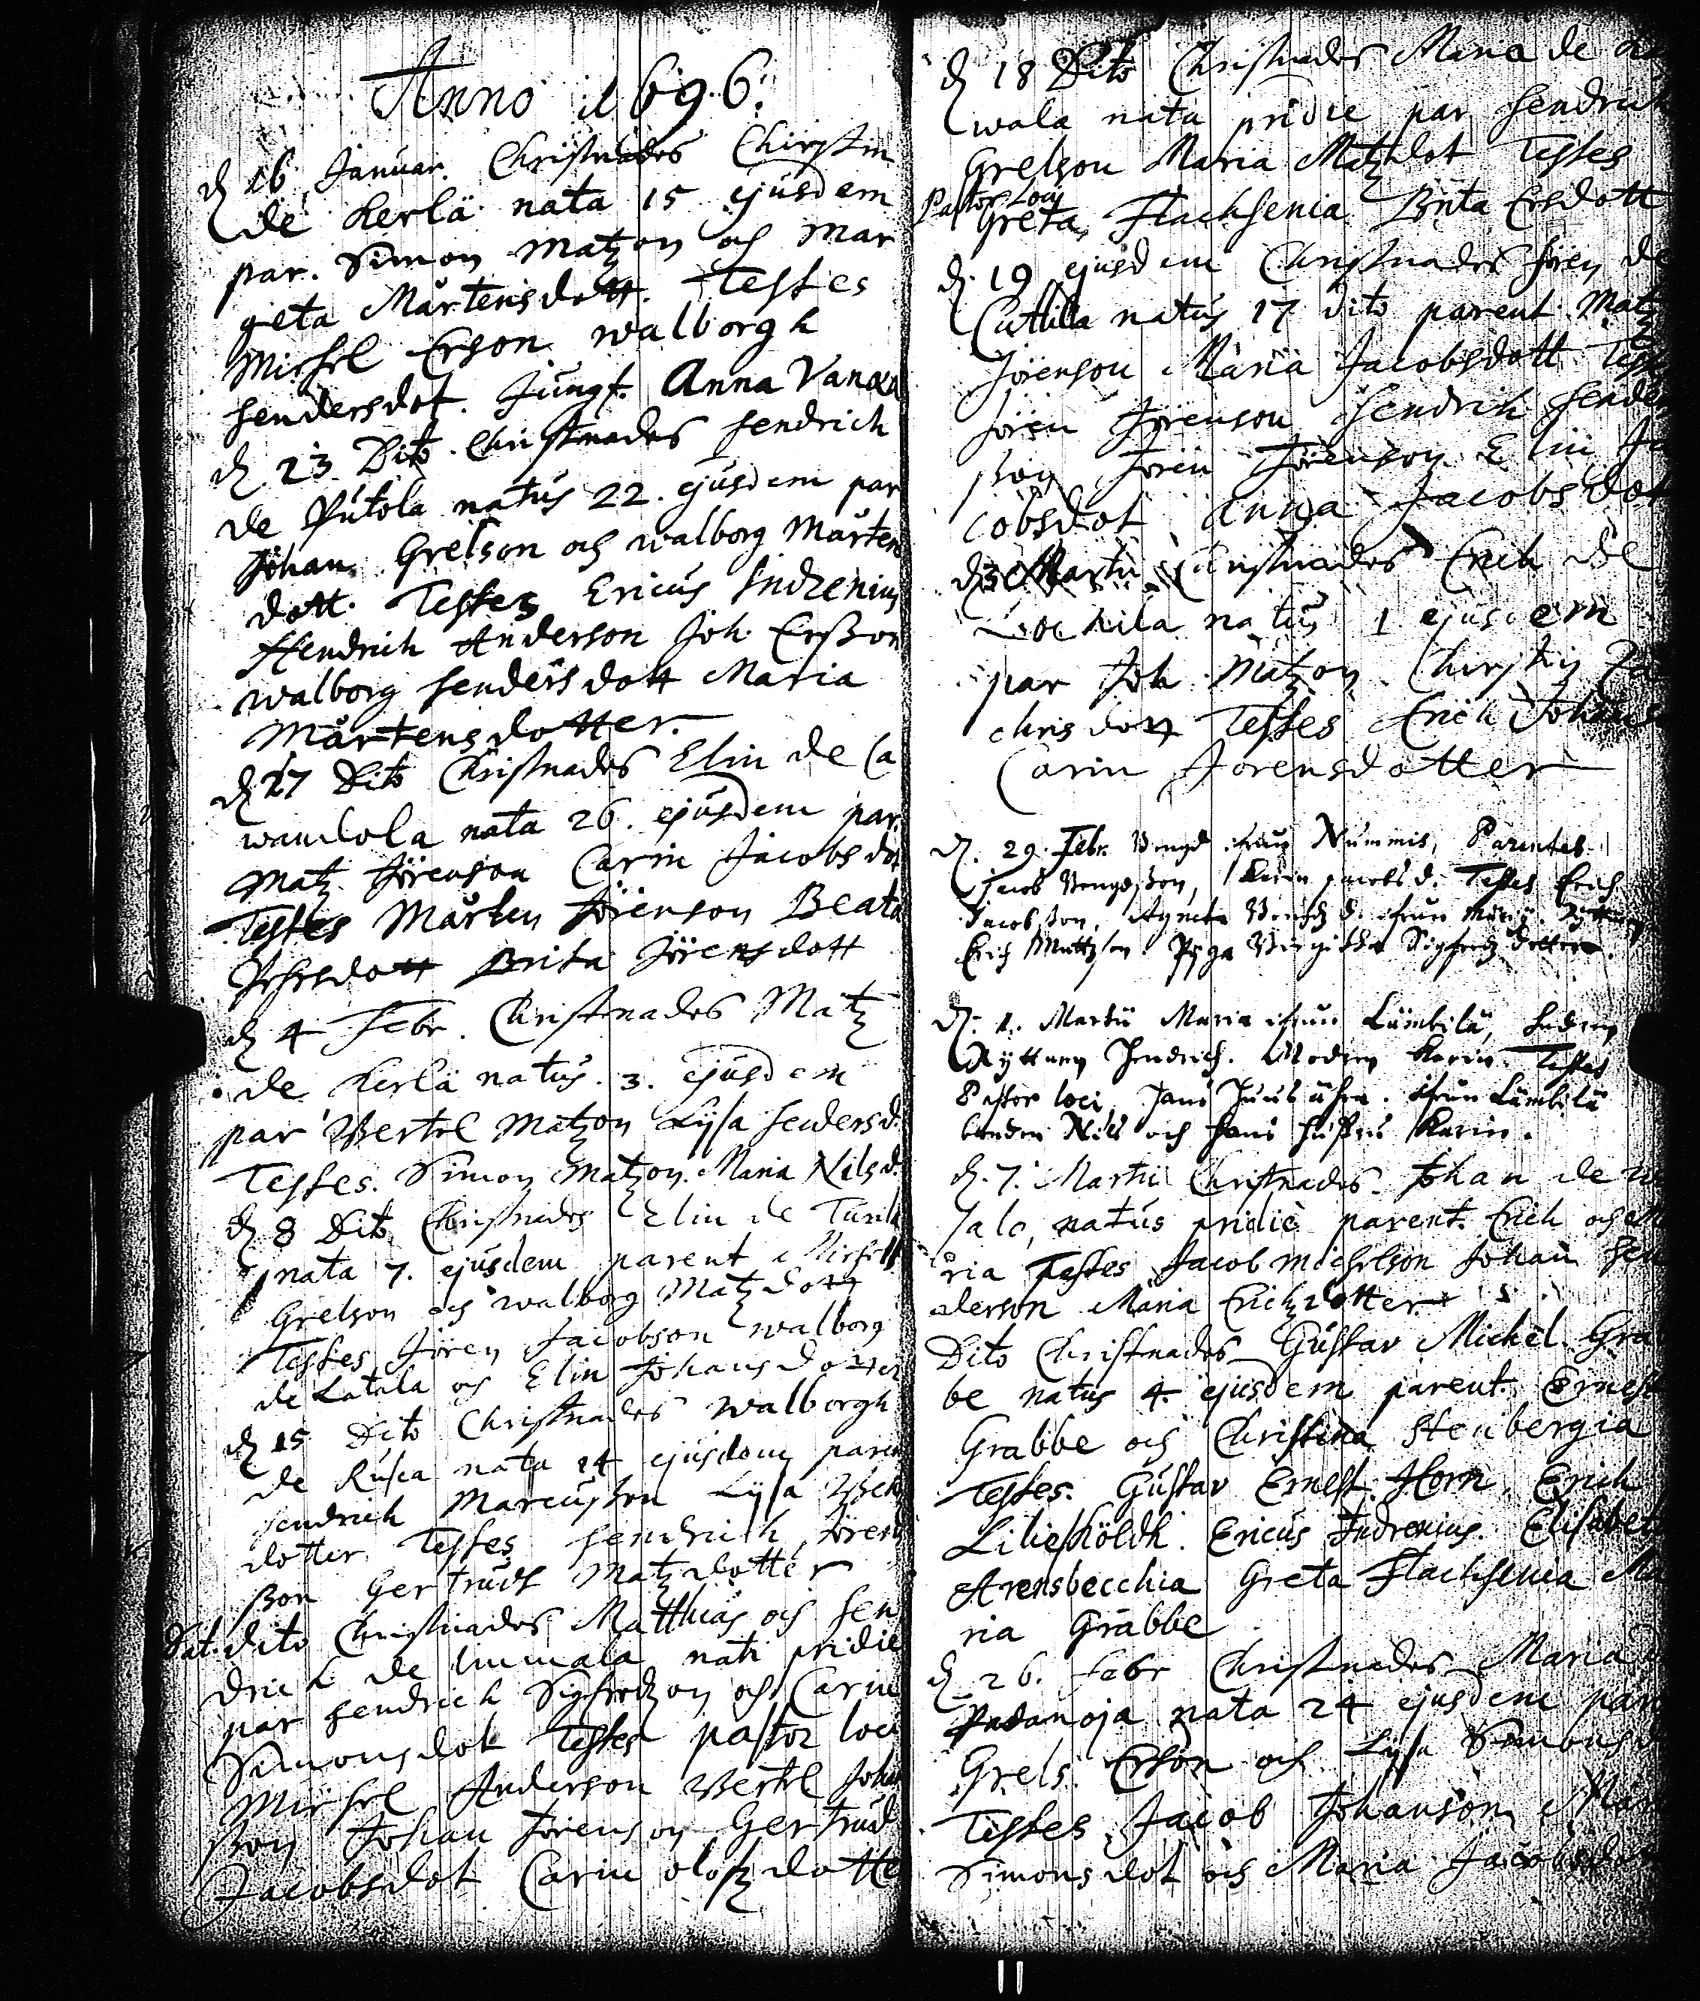 Anno 1696.
d 16 Januar. Christnades Chirstin
de Kerlä nata 15 ejusdem
par. Simon Matzon och Mar
geta Mårtensdott. Testes
Michel Erson walborgh
hendersdot. Jungf. Anna
d 23 Dito Christnades hendrich
de Putola natus 22. ejusdem par
Johan Grelson och walborg Mårtens
dott. Testes Ericus Indrenius
Hendrich Anderson Joh. Ersson
walborg hendersdott Maria
Mårtensdotter.
d 27 Dito Christnades Elin de Ca
wandola nata 26. ejusdem par.
Matz Jörenson Carin Jacobsdot
Testes Mårten Jörenson Beata
Brita Jörensdott
d 4 Febr. Christnades Matz
de Kerlä natus. 3. ejusdem
par Bertel Matzon Lysa hendersd.
Testes. Simon Matzon. Maria Nilsd.
d 8 Dito Christnades Elin de
nata 7. ejusdem parent Michell
Grelson och walborg Matzdott
Testes Jören Jacobson walborg
de Latala och Elin Johansdotter
d 15 Dito Christnades walborgh
de Rusca nata 14 ejusdem paren
hendrich Marcusson Lysa
dotter Testes hendrich Jörens
son Gertrudh Matzdotter
Dat. dito Christnades Matthias och hen
drich de Immala nati pridie
par hendrich Sigfredzon och Carin
Simonsdot Testes pastor loci
Michel Anderson Bertel Johan
son Johan Jörenson Gertrud
Jacobsdot Carin olofzdotte
d 18 Dito Christnades Maria de
wala nata pridie par hendrich
Grelson Maria Matzdot Testes
Pastor Loci
Greta Flachsenia Brita Ersdott
d. 19 ejusdem Christnades Jören de
Cuttila natus 17 dito parent. Matz
Jörenson Maria Jacobsdott Test
Jören Jörenson hendrich hender
son Jören Jörenson Elin Ja
cobsdot Anna Jacobsdot
d 3 Martii Christnades Erich de
natus 1 ejusdem
par Joh Matzon Chirstin
chrisdott Testes Erich Johans
Carin Jörensdotter
d. 29. Febr. Bengd ifrån Nummis, Parentes
Jacob Bengdsson, Karin Jacobs d. Testes Erich
Jacobsson, Agneta d. ifrån
Erich Mattzson Pyga Birgitta Sigfredz dotter.
d. 1. Martii Maria ifrån Lämbilä, fadren
Ryttaren Hendrich. Modren Karin. Testes
Pastor loci, Hans ifrån Lämbilä
bonden Nils och hans hustru Karin.
d. 7. Martii Christnades Johan de
jalo, natus pridie parent. Erich och Ma
ria Testes Jacob Michelson Johan hen
derson Maria Erichzdotter
Dito Christnades Gustav Michel Grab
be natus 4. ejusdem parent. Ernest
Grabbe och Christina Stenbergia
Testes. Gustav Ernest Horn, Erich
Liliesköldh. Ericus Indrenius. Elisabeth
Arensbecchia Greta Flachsenia Ma
ria Grabbe
d 26. Febr Christnades Maria
Padanoja nata 24 ejusdem par
Grels Erson och Lysa Simonsd
Testes Jacob Johanson
Simonsdot och Maria Jacobsdot
11